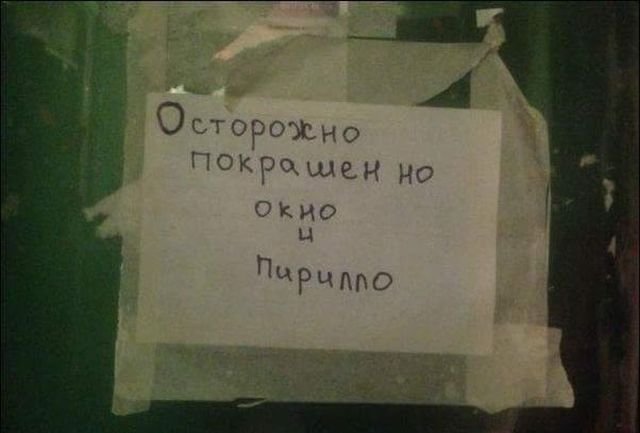 Осторожно
покрашен но
окно
и
пирилло